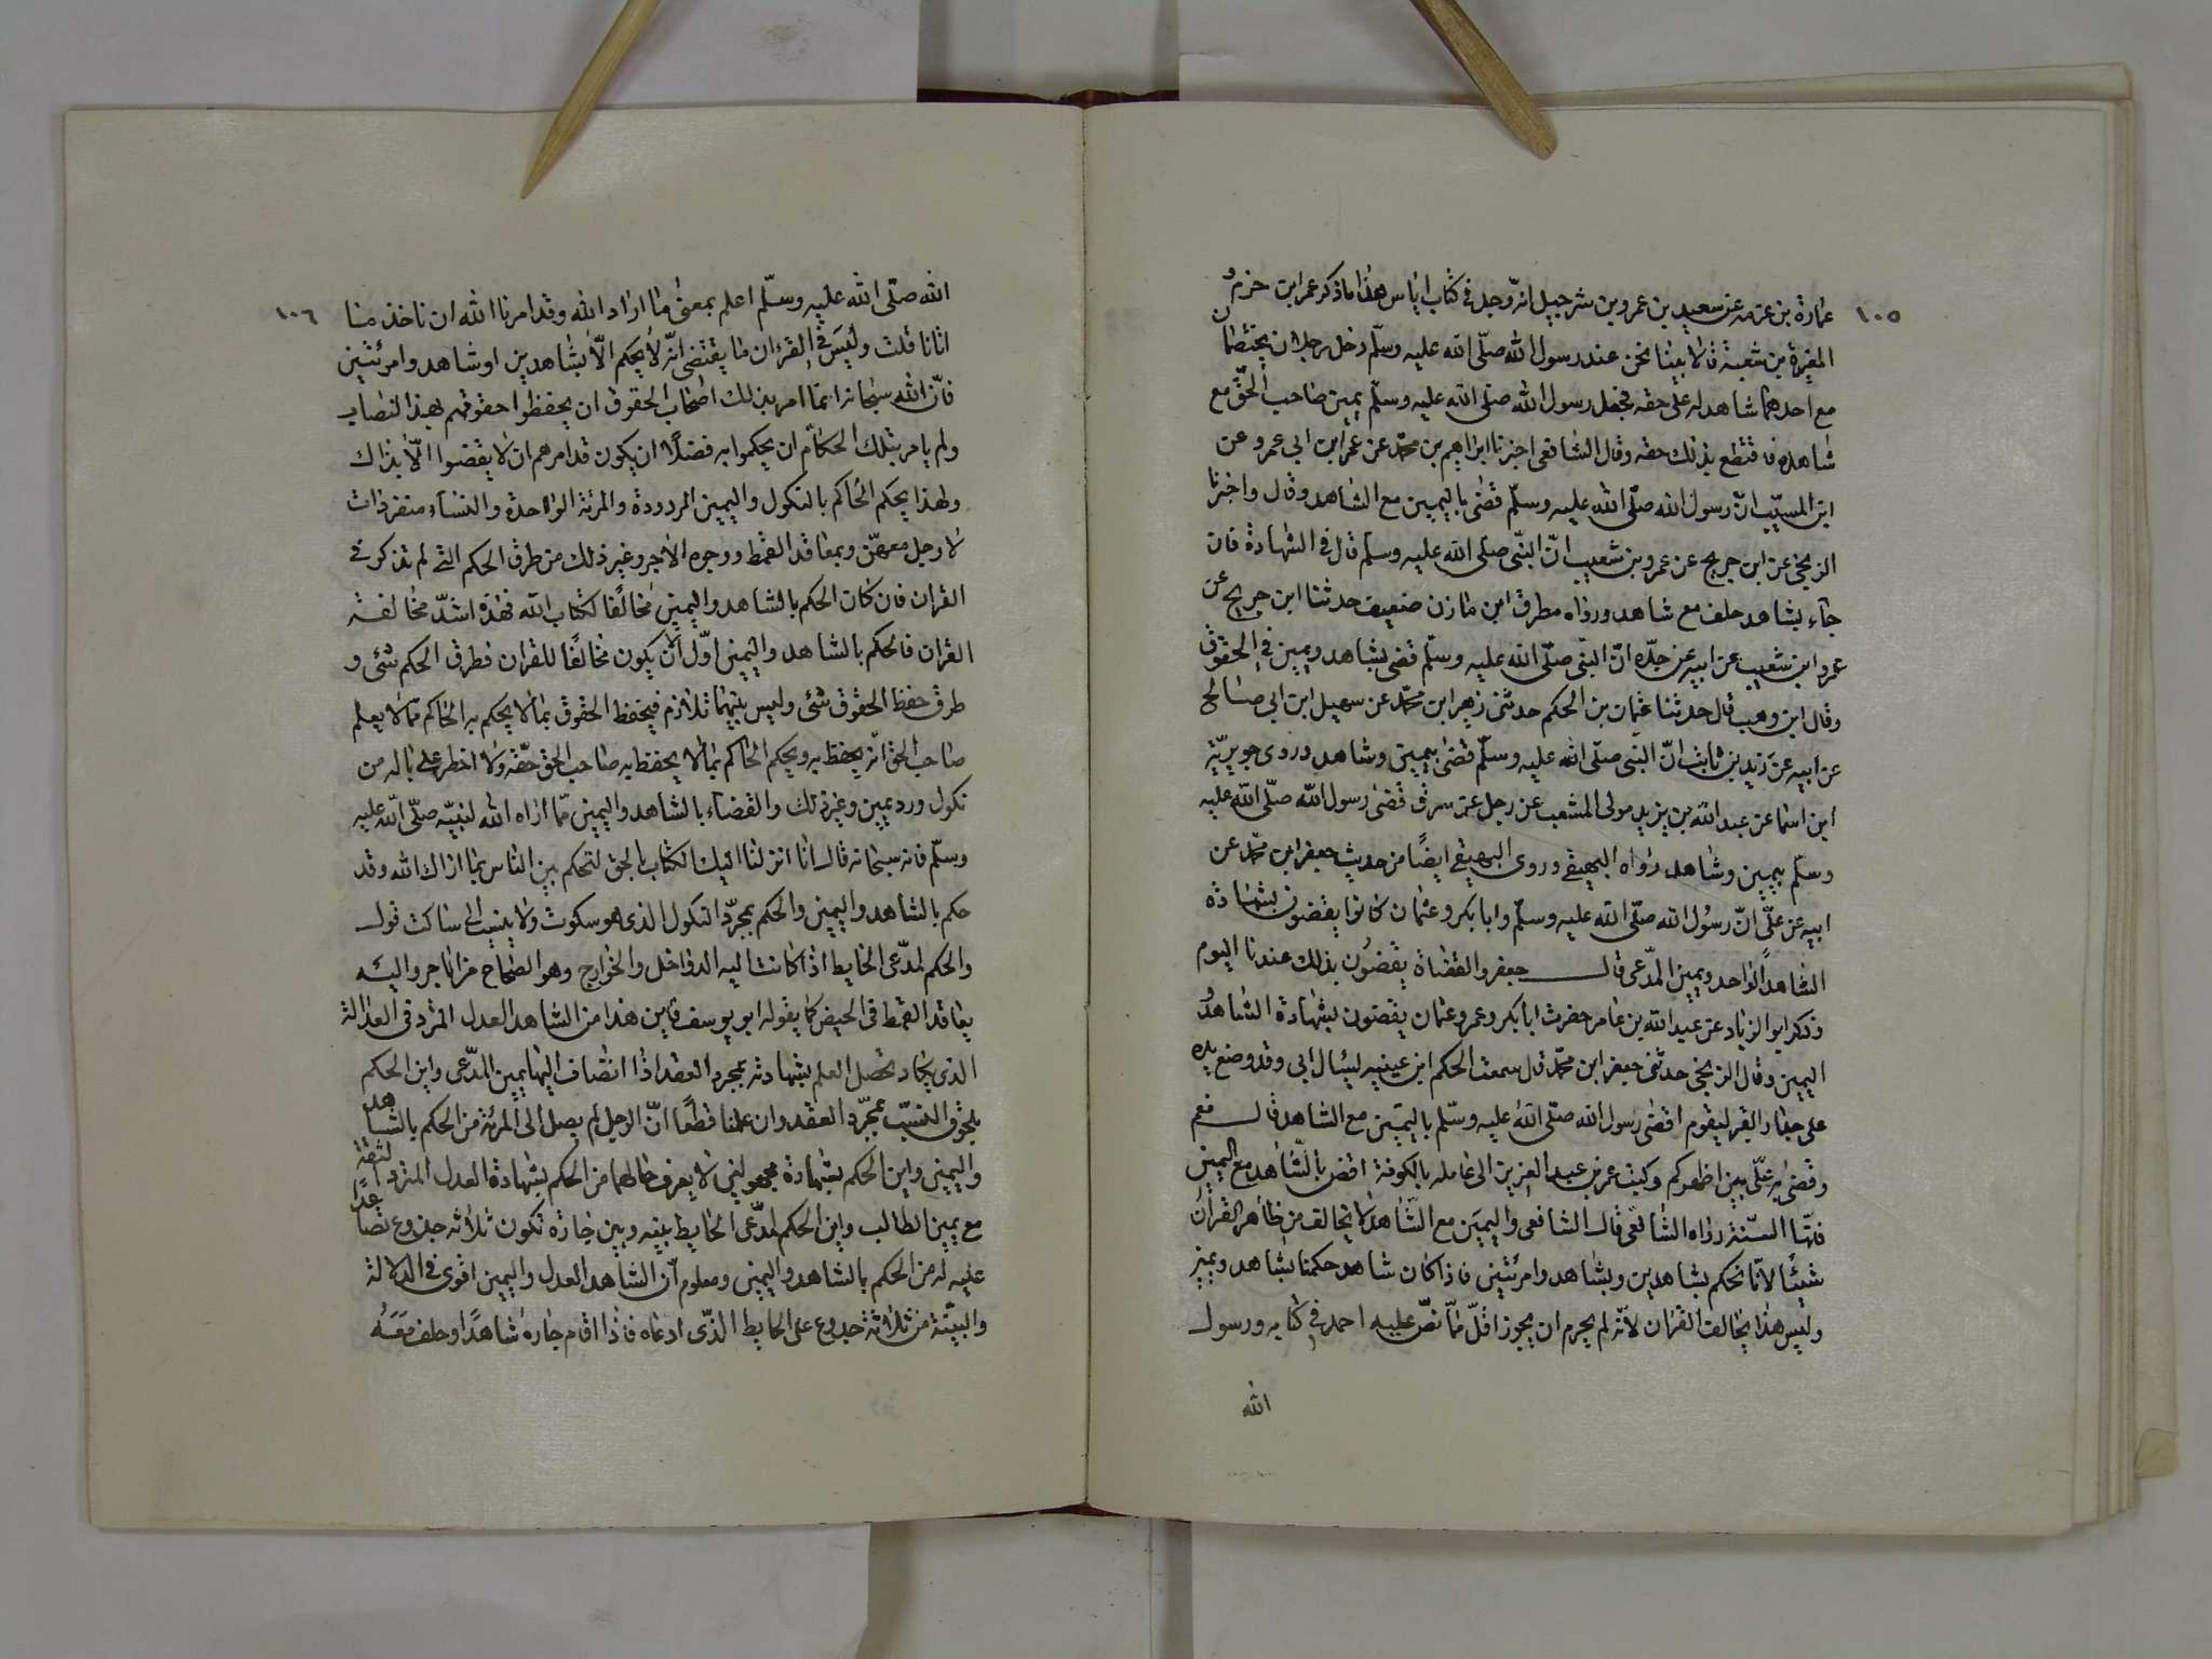 ١٠٥
عمارة بن غزمه عن سعيد بن عمرو بن شرجيل انه وجد في كتاب اباس هذا ما ذكر عمر ابن حزم و
المغيرة بن شعبة قالا بينا نحن عند رسول الله صلّى الله عليه وسلّم دخل رجلان يختصمان
مع احدهما شاهد له على حقه فجعل رسول الله صلى الله عليه وسلّم يمين صاحب الحقّ مع
شاهده فاقتطع بذلك حقه وقال الشافعى اخبرنا ابراهيم بن محمّد عن عمر ابن ابي عمرو عن
ابن المسيّب انّ رسول الله صلّى الله عليه وسلّم قضى باليمين مع الشاهد وقال واخبرنا
الزنجي عن ابن جريج عن عمرو بن شعيب انّ النبّى صلى الله عليه وسلم قال في الشهادة فان
جآء بشاهد حلف مع شاهد ورواه مطرف ابن مازن ضعيف حدثنا ابن جريج عن
عمرو ابن شعيب عن ابيه عن جدّه انّ النبّى صلّى الله عليه وسلّم قضى بشاهد ويمين في الحقوق
وقال ابن وهب قال حدثنا عثمان بن الحكم حدثنى زهير ابن محمّد عن سهيل ابن ابي صالح
عن ابيه عن زيد بن ثابت انّ النبى صلّى الله عليه وسلّم قضى بيمين وشاهد وروى جويريّة
ابن اسما عن عبد الله بن يزيد مولى المشعب عن رجل عن سرق قضى رسول الله صلّى الله عليه
وسلّم بيمين وشاهد رواه البيهقي وروى البيهقي ايضًا من حديث جعفر ابن محمّد عن
ابيه عن علّي انّ رسُول الله صلّى الله عليه وسلّم وابا بكر وعثمان كانوا يقضون بشهادة
الشاهد الواحد ويمين المدّعى قال جعفر والقضاة يقضُون بذلك عندنا اليوم
وذكر ابو الزياد عن عبد الله بن عامر حضرت ابا بكر وعمر وعثمان يقضون بشهادة الشاهد و
اليمين وقال الزنجى حدثنى جعفر ابن محمّد قال سمعت الحكم ابن عيينه ليسال ابي وقد وضع يده
على جدار القبر ليقوم اقضى رسول الله صلّى الله عليه وسلّم باليمين مع الشاهد قال نعم
وقضى به علّى بين اظهركم وكتب عمر بن عبد العزيز الى عامله بالكوفة اقض بالشّاهد مع اليمين
فانّها السّنة رواه الشافعى قال الشافعى واليمين مع الشّاهد لا يخالف من ظاهر القرآن
شيئًا لانّا نحكم بشاهدين وبشاهد وامرئتين فاذا كان شاهد حكمنا بشاهد ويمين
وليس هذا يخالف القران لانّه لم يحرم ان يجوز اقلّ ممّا نصّ عليه احمد في كتابه ورسول
الله
١٠٦
الله صلّى الله عليه وسلّم اعلم بمعنى ما اراد الله وقد امرنا الله ان ناخذ منا
اتانا قلت وليَس في القرءان ما يقتضى انّه لا يحكم الّا بشاهدين او شاهد وامرئتين
فانّ الله سبحانه انما امر بذلك اصحاب الحقوق ان يحفظوا حقوقهم بهذا النصاب
ولم يامر بتلك الحكام ان يحكموا به فضلًا ان يكون قد امرهم ان لا يقضوا الّا بذاك
ولهذا يحكم الحاكم بالنكول واليمين المردودة والمرئة الواحدة والنسآء منفردات
لا رجل معهنّ وبمعاقد القمط ووجوه الاجر وغير ذلك من طرق الحكم التى لم تذكر في
القران فان كان الحكم بالشاهد واليمين مخالفًا لكتاب الله فهذه اشدّ مخالفة
القران فالحكم بالشاهد واليمين اوّل انّ يكون مخالفًا للقران فطرق الحكم شئ و
طرق حفظ الحقوق شئ وليس بينهما تلازم فيحفظ الحقوق بما لا يحكم به الحاكم ممّا لا يعلم
صاحب الحق انّه يحفظ به ويحكم الحاكم بما لا يحفظ به صاحب الحق حقّه ولا اخطر على باله من
نكول ورد يمين وغير ذلك والقضاء بالشاهد واليمين ممّا اراه الله لنبيّه صلّى الله عليه
وسلّم فانه سبحانه قال انا انزلنا اليك الكتاب بالحق لتحكم بين الناس بما اراك الله وقد
حكم بالشاهد واليمين والحكم بمجرّد النكول الذى هو سكوت ولا ينسب الى ساكت قول
والحكم لمدّعى الحايط اذا كانت اليه الدواخل والخوارج وهو الصحاح من الاجر واليئه
بمعاقد القمط في الحيض كما يقوله ابو يوسف فاين هذا من الشاهد العدل المثرد في العدالة
الذى يكاد تحصل العلم بشهادته بمجرد العقد اذا انضاف اليها يمين المدّعى واين الحكم
بلحوق النسب بمجرّد العقد وان علمنا قطعًا انّ الرجل لم يصل الى المرئة من الحكم بالشاهد
واليمين واين الحكم بشهادة مجهولين لا يعرف حالهما من الحكم بشهادة العدل المثرد الثقة
مع يمين الطالب واين الحكم لمدّعى الحايط بينه وبين جاره تكون ثلاثه جذوع نصاعدًا
عليه له من الحكم بالشاهد واليمين ومعلوم انّ الشاهد العدل واليمين اقوى في الدلالة
والبيّنة من ثلاثة جدوع على الحايط الذّى ادعاه فاذا اقام جاره شاهدًا وحلف مَعَهُ